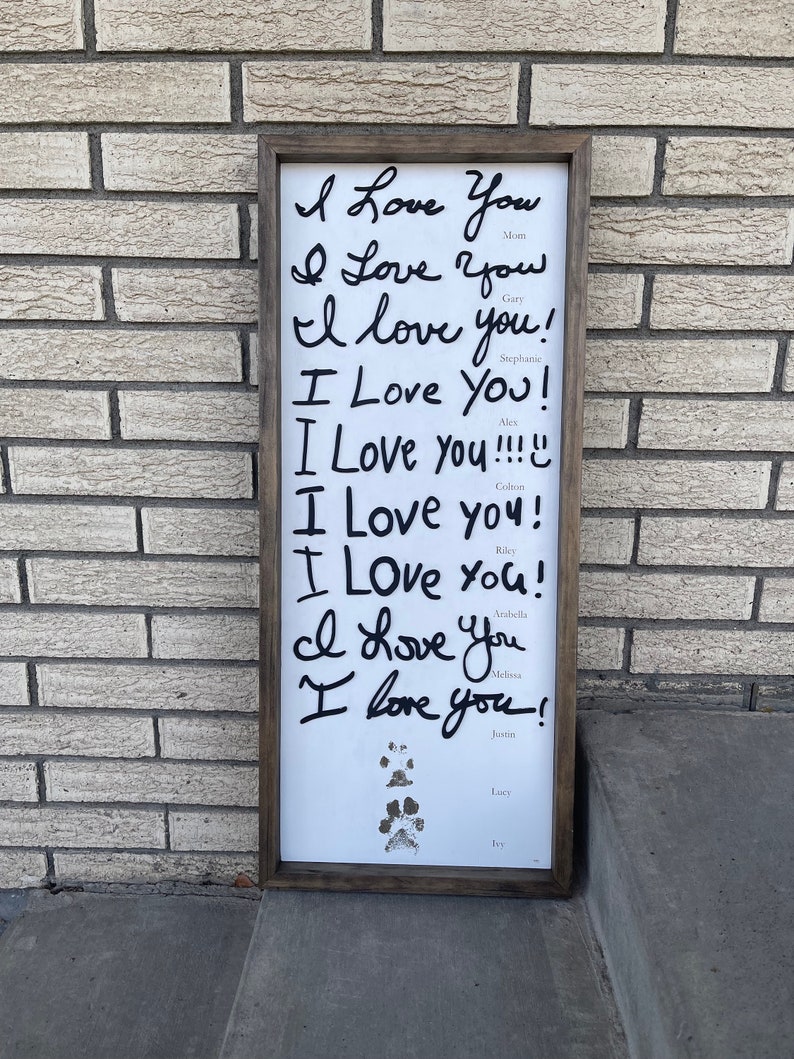 I Love You
Mom
I Love You
Gary
I love you!
Stephanie
I Love You!
Alex
I Love you!!!
Colton
I Love you!
Riley
I Love you!
Arabella
I Love You
Melissa
I love you!
Justin
Lucy
Ivy